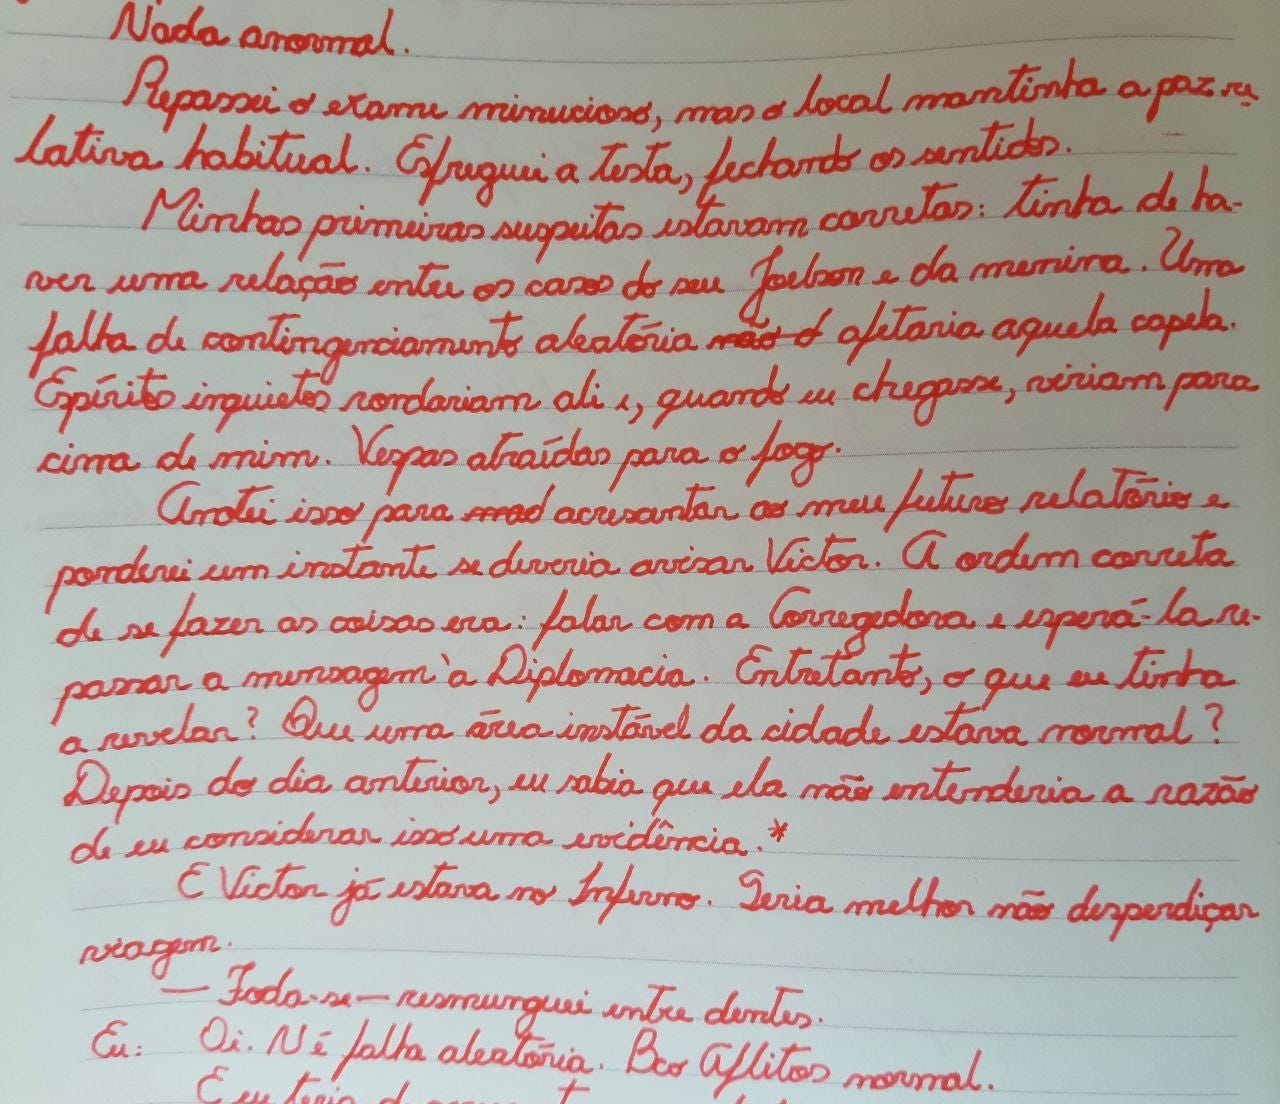 Nada anormal.
Repassei o exame minucioso, mas o local mantinha a paz re-
lativa habitual. Esfreguei a testa, fechando os sentidos.
Minhas primeiras suspeitas estavam corretas: tinha de ha-
ver uma relação entre os casos do seu Joelson e da menina. Uma
falha de contingenciamento aleatória não d afetaria aquela capela.
Espíritos inquietos rondariam ali e, quando eu chegasse, viriam para
cima de mim. Vespas atraídas para o fogo.
Anotei isso para mad acresantar ao meu futuro relatório e
ponderei um instante se deveria avisar Victor. A ordem correta
de se fazer as coisas era: falar com a Corregedora e esperá-la re-
passar a mensagem à Diplomacia. Entretanto, o que eu tinha
a revelar? Que uma área instável da cidade estava normal?
Depois do dia anterior, eu sabia que ela não entenderia a razão
de eu considerar isso uma evidência.*
E Victor já estava no Inferno. Seria melhor não desperdiçar
viagem.
— Foda-se — resmunguei entre dentes.
Eu: Oi. N é falha aleatória. Bco Aflitos normal.
E eu teria